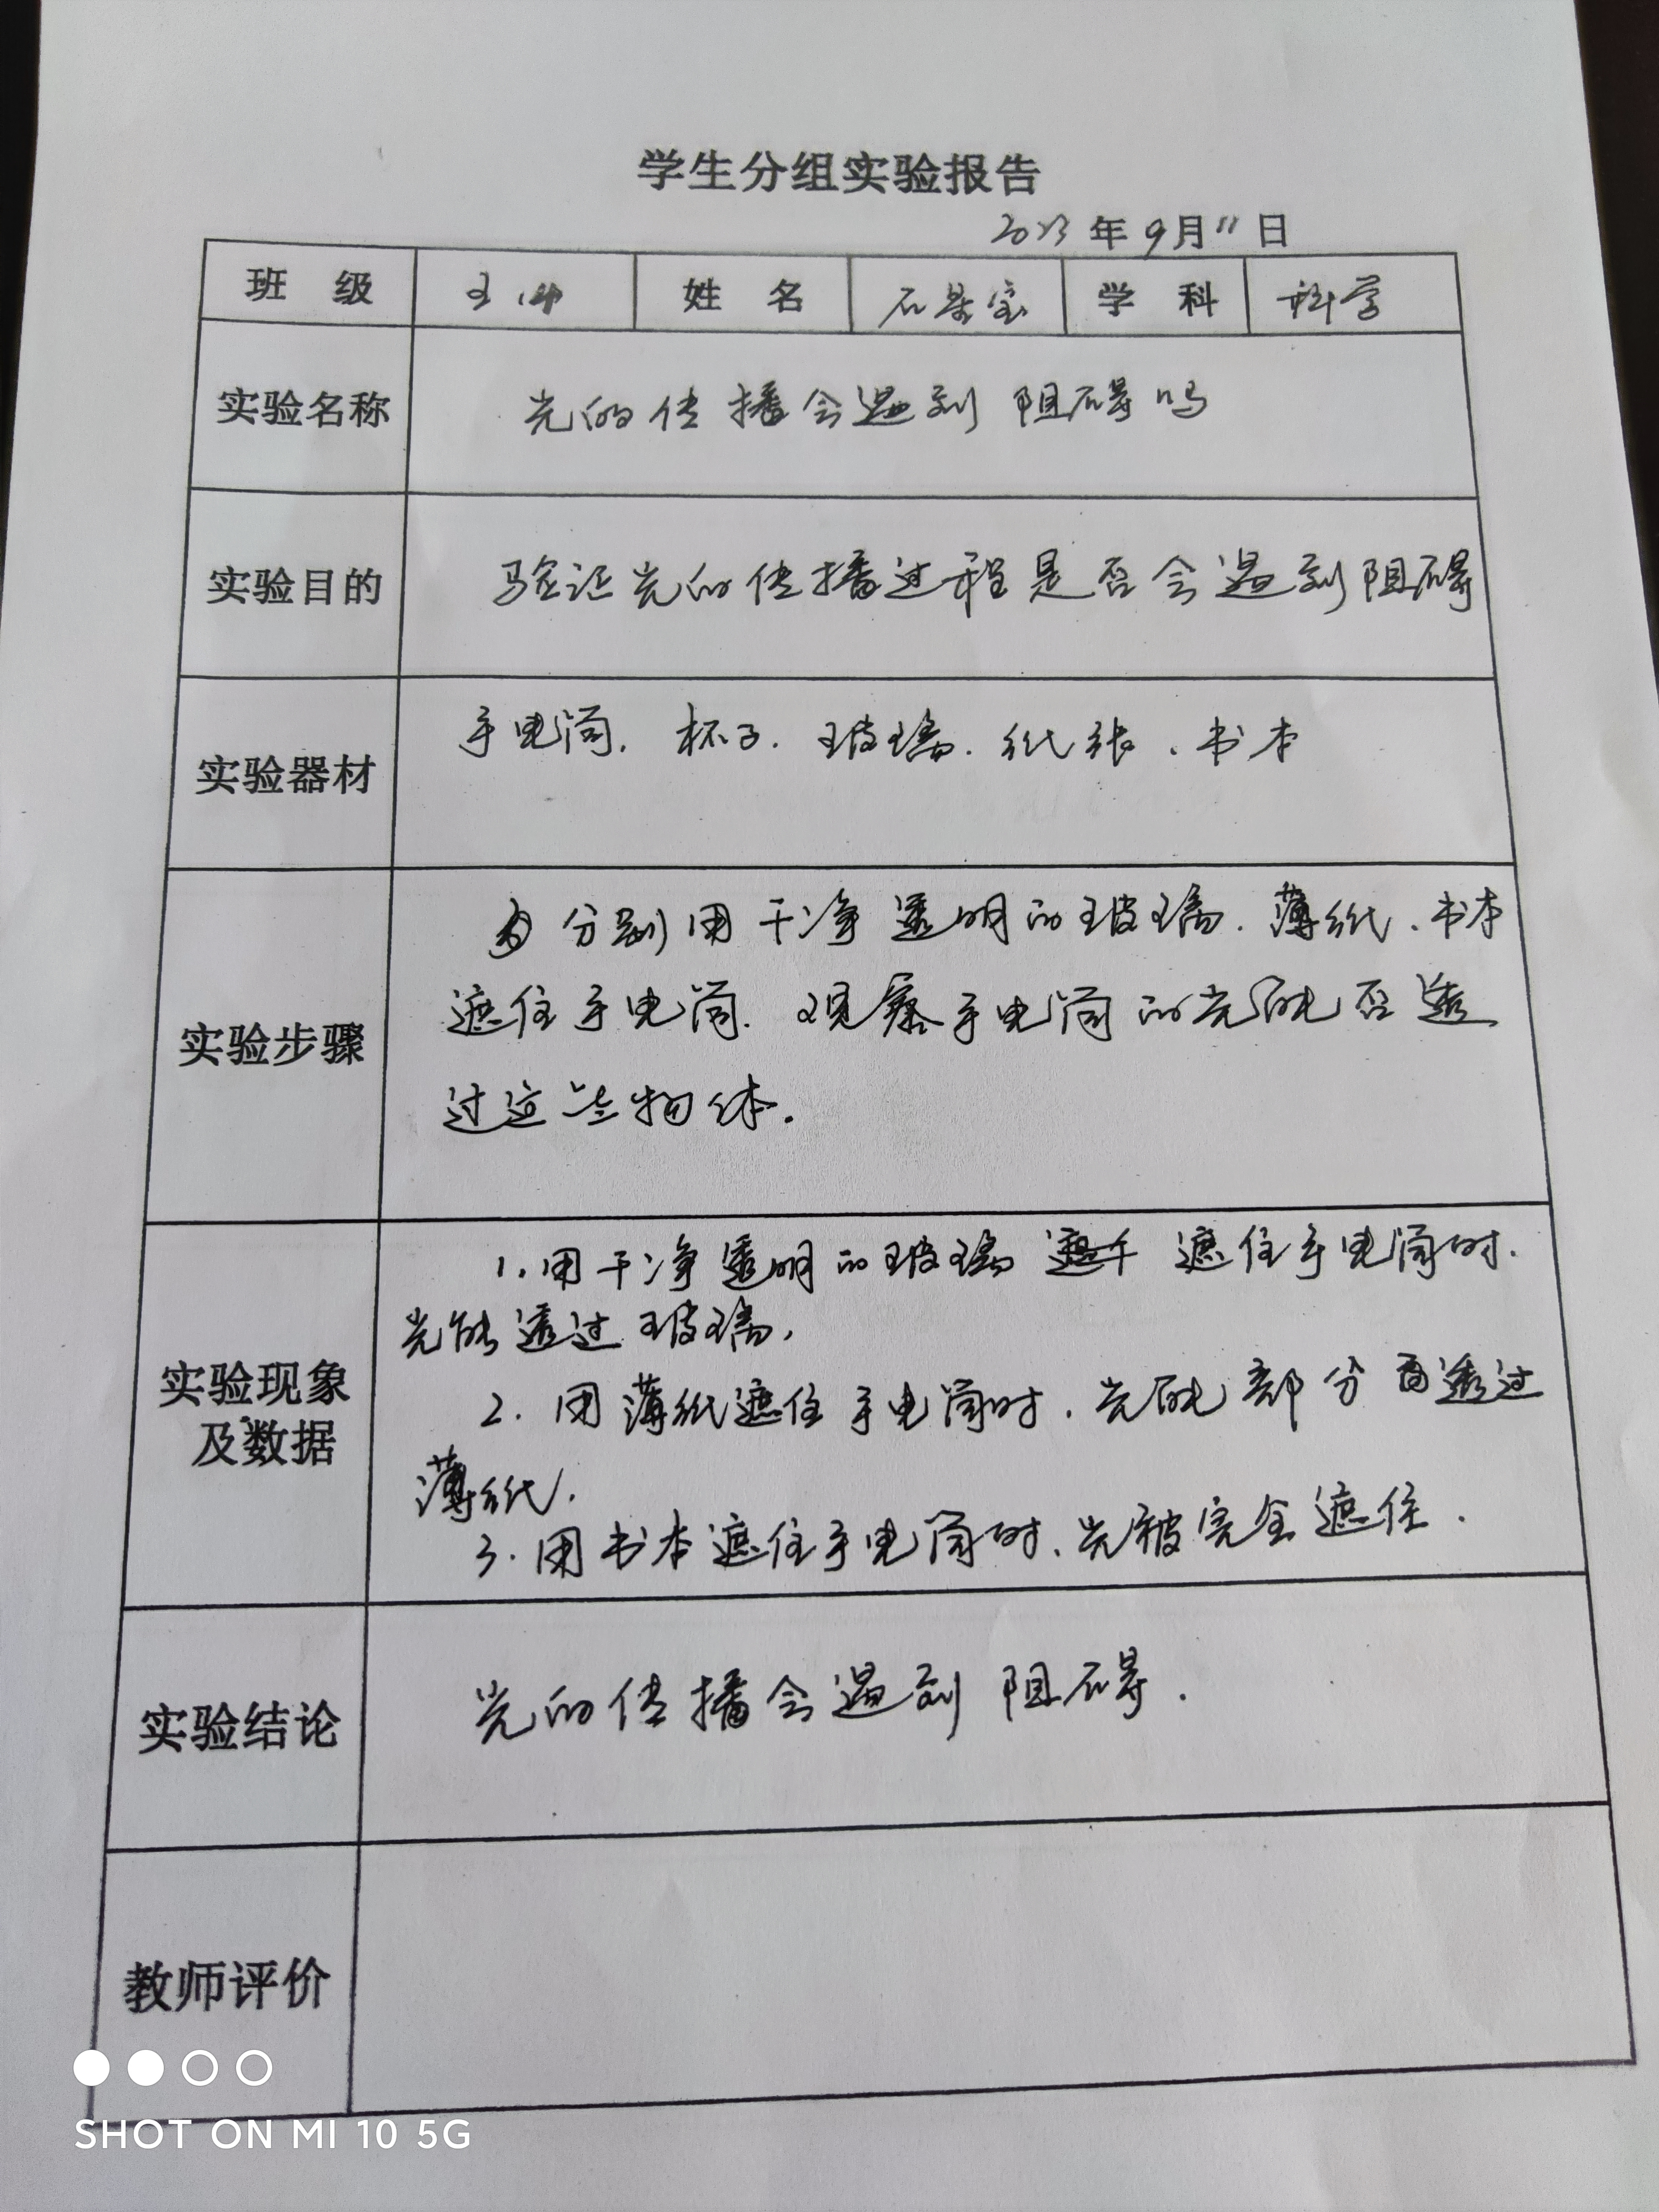 学生分组实验报告
2023年9月11日
班 级 姓 名 石景宝 学 科 科学
实验名称 光的传播会遇到阻碍吗
实验目的 验证光的传播过程是否会遇到阻碍
实验器材 手电筒、杯子、玻璃、纸张、书本
实验步骤
分别用干净透明的玻璃、薄纸、书本
遮住手电筒、观察手电筒的光能否透
过这些物体.
实验现象
及数据
1.用干净透明的玻璃 遮住手电筒时.
光能透过玻璃,
2.用薄纸遮住手电筒时,光能部分透过
薄纸.
3.用书本遮住手电筒时、光被完全遮住.
实验结论 光的传播会遇到阻碍.
教师评价
SHOT ON MI 10 5G